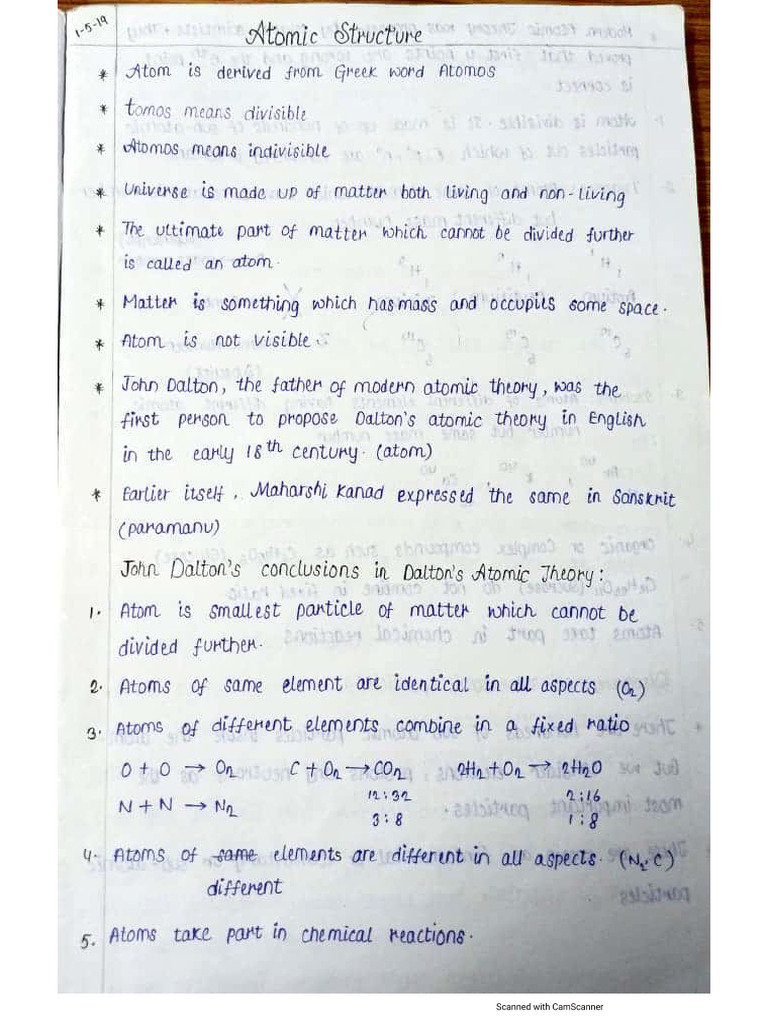 1-5-19
Atomic Structure
* Atom is derived from Greek word Atomos
* tomos means divisible
* Atomos means indivisible
* Universe is made up of matter both living and non-living
* The ultimate part of matter which cannot be divided further
is called an atom.
* Matter is something which has mass and occupies some space.
* Atom is not visible.
* John Dalton, the father of modern atomic theory, was the
first person to propose Dalton's atomic theory in English
in the early 18th century. (atom)
* Earlier itself, Maharshi Kanad expressed the same in Sanskrit
(paramanu)
John Dalton's conclusions in Dalton's Atomic Theory:
1. Atom is smallest particle of matter which cannot be
divided further.
2. Atoms of same element are identical in all aspects (O₂)
3. Atoms of different elements combine in a fixed ratio
O + O → O₂ C + O₂ → CO₂ 2H₂ + O₂ → 2H₂O
N + N → N₂ 12:32 2:16
3:8 1:8
4. Atoms of same elements are different in all aspects. (N₂, C)
different
5. Atoms take part in chemical reactions.
Scanned with CamScanner